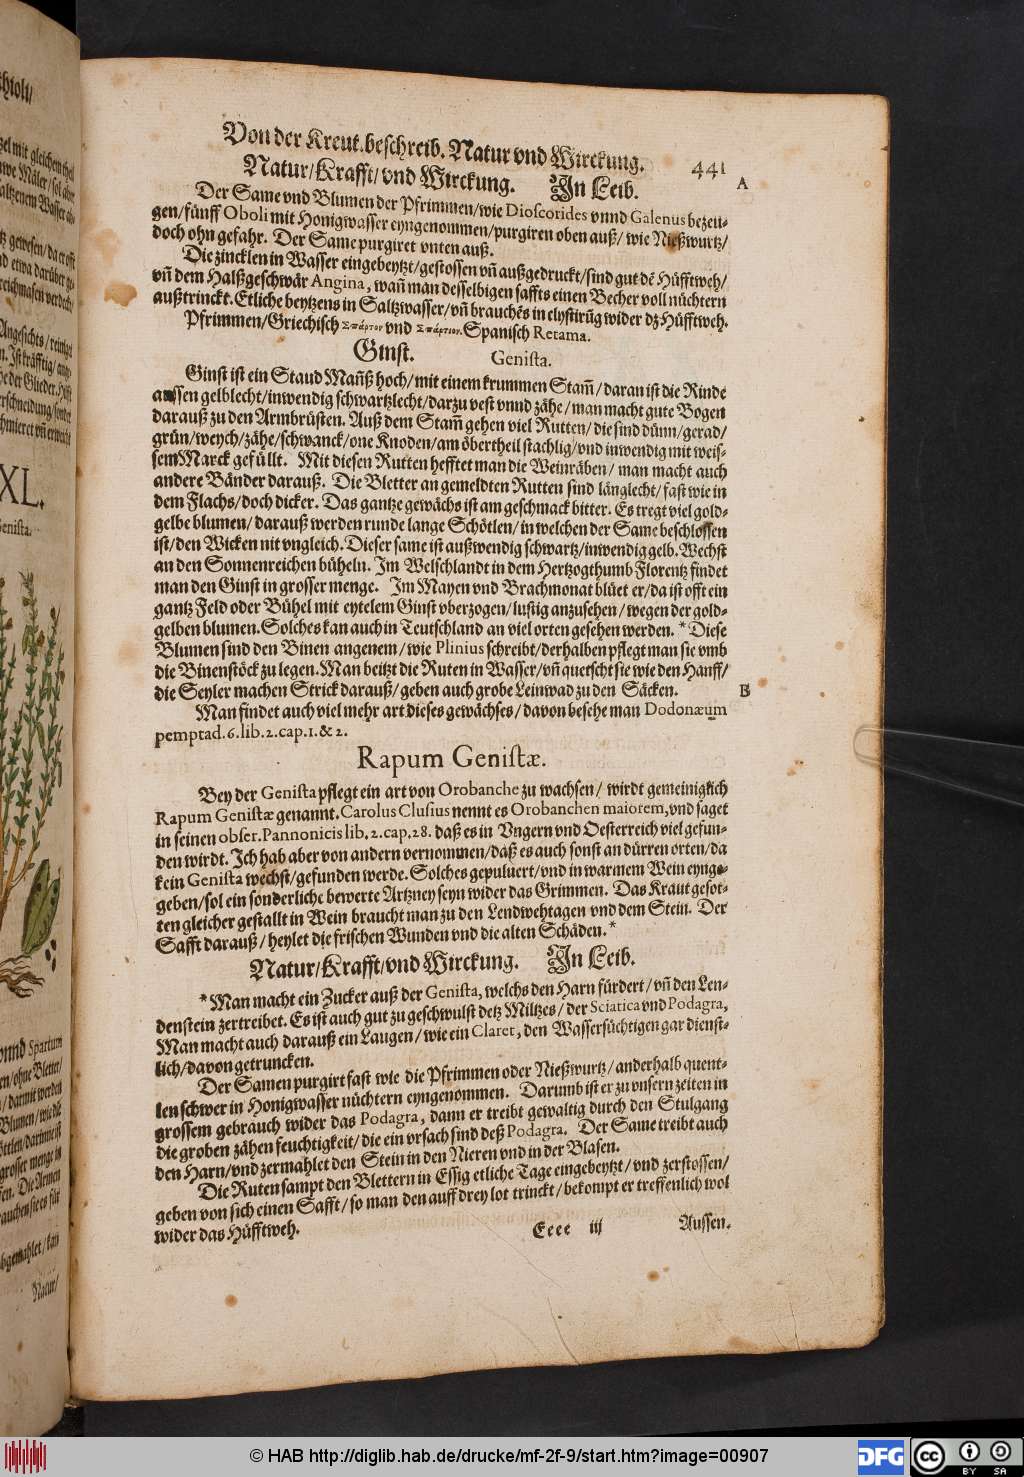 Von der Kreut. beschreib. Natur vnd Wirckung. 441
Natur/Krafft/vnd Wirckung. In Leib.
A
Der Same vnd Blumen der Pfrimmen/wie Dioſcorides vnnd Galenus bezeu-
gen/fünff Oboli mit Honigwaſſer eyngenommen/purgiren oben auß/ wie Nießwurtz/
doch ohn gefahr. Der Same purgiret vnten auß.
Die zincklen in Waſſer eingebeytzt/geſtoſſen vñ außgedruckt/ſind gut dẽ Hüfftweh/
vñ dem Halßgeſchwär Angina, wañ man deſſelbigen ſaffts einen Becher voll nüchtern
außtrinckt. Etliche beytzens in Saltzwaſſer/vñ brauchẽs in clyſtirũg wider dz Hüfftweh.
Pfrimmen/Griechiſch Σπάρτον vnd Σπάρτιον. Spaniſch Retama.
Ginſt. Geniſta.
Ginſt iſt ein Staud Mañß hoch/mit einem krummen Stam̃/daran iſt die Rinde
auſſen gelblecht/inwendig ſchwartzlecht/darzu veſt vnnd zähe/man macht gute Bogen
darauß zu den Armbrüſten. Auß dem Stam̃ gehen viel Rutten/die ſind dünn/gerad/
grün/weych/zähe/ſchwanck/one Knoden/am öbertheil ſtachlig/vnd inwendig mit weiſ-
ſem Marck gefüllt. Mit dieſen Rutten hefftet man die Weinräben/ man macht auch
andere Bänder darauß. Die Bletter an gemeldten Rutten ſind länglecht/faſt wie in
dem Flachs/doch dicker. Das gantze gewächs iſt am geſchmack bitter. Es tregt viel gold-
gelbe blumen/ darauß werden runde lange Schötlen/in welchen der Same beſchloſſen
iſt/den Wicken nit vngleich. Dieſer ſame iſt außwendig ſchwartz/inwendig gelb. Wechſt
an den Sonnenreichen büheln. Im Welſchlandt in dem Hertzogthumb Florentz findet
man den Ginſt in groſſer menge. Im Mayen vnd Brachmonat blüet er/da iſt offt ein
gantz Feld oder Bühel mit eytelem Ginſt vberzogen/luſtig anzuſehen/wegen der gold-
gelben blumen. Solches kan auch in Teutſchland an viel orten geſehen werden. * Dieſe
Blumen ſind den Binen angenem/wie Plinius ſchreibt/derhalben pflegt man ſie vmb
die Binenſtöck zu legen. Man beitzt die Ruten in Waſſer/vñ quetſcht ſie wie den Hanff/
die Seyler machen Strick darauß/geben auch grobe Leinwad zu den Säcken.
B
Man findet auch viel mehr art dieſes gewächſes/davon beſehe man Dodonæum
pemptad.6.lib.2.cap.1.& 2.
Rapum Geniſtæ.
Bey der Geniſta pflegt ein art von Orobanche zu wachſen/ wirdt gemeiniglich
Rapum Geniſtæ genannt. Carolus Cluſius nennt es Orobanchen maiorem, vnd ſaget
in ſeinen obſer. Pannonicis lib. 2. cap. 28. daß es in Vngern vnd Oeſterreich viel gefun-
den wirdt. Ich hab aber von andern vernommen/daß es auch ſonſt an dürren orten/da
kein Geniſta wechſt/gefunden werde. Solches gepuluert/vnd in warmem Wein eynge-
geben/ſol ein ſonderliche bewerte Artzney ſeyn wider das Grimmen. Das Kraut geſot-
ten gleicher geſtallt in Wein braucht man zu den Lendwehtagen vnd dem Stein. Der
Safft darauß/heylet die friſchen Wunden vnd die alten Schäden. *
Natur/Krafft/vnd Wirckung. In Leib.
* Man macht ein Zucker auß der Geniſta, welchs den Harn fürdert/vñ den Len-
denſtein zertreibet. Es iſt auch gut zu geſchwulſt detz Miltzes/der Sciatica vnd Podagra,
Man macht auch darauß ein Laugen/wie ein Claret, den Waſſerſüchtigen gar dienſt-
lich/davon getruncken.
Der Samen purgirt faſt wie die Pfrimmen oder Nießwurtz/anderhalb quent-
len ſchwer in Honigwaſſer nüchtern eyngenommen. Darumb iſt er zu vnſern zeiten in
groſſem gebrauch wider das Podagra, dann er treibt gewaltig durch den Stulgang
die groben zähen feuchtigkeit/die ein vrſach ſind deß Podagra. Der Same treibt auch
den Harn/vnd zermahlet den Stein in den Nieren vnd in der Blaſen.
Die Ruten ſampt den Blettern in Eſſig etliche Tage eingebeytzt/vnd zerſtoſſen/
geben von ſich einen Safft/ſo man den auff drey lot trinckt/bekompt er treffenlich wol
wider das Hüfftweh.
Eeee iij Auſſen.
XL.
© HAB http://diglib.hab.de/drucke/mf-2f-9/start.htm?image=00907
DFG
cc BY SA